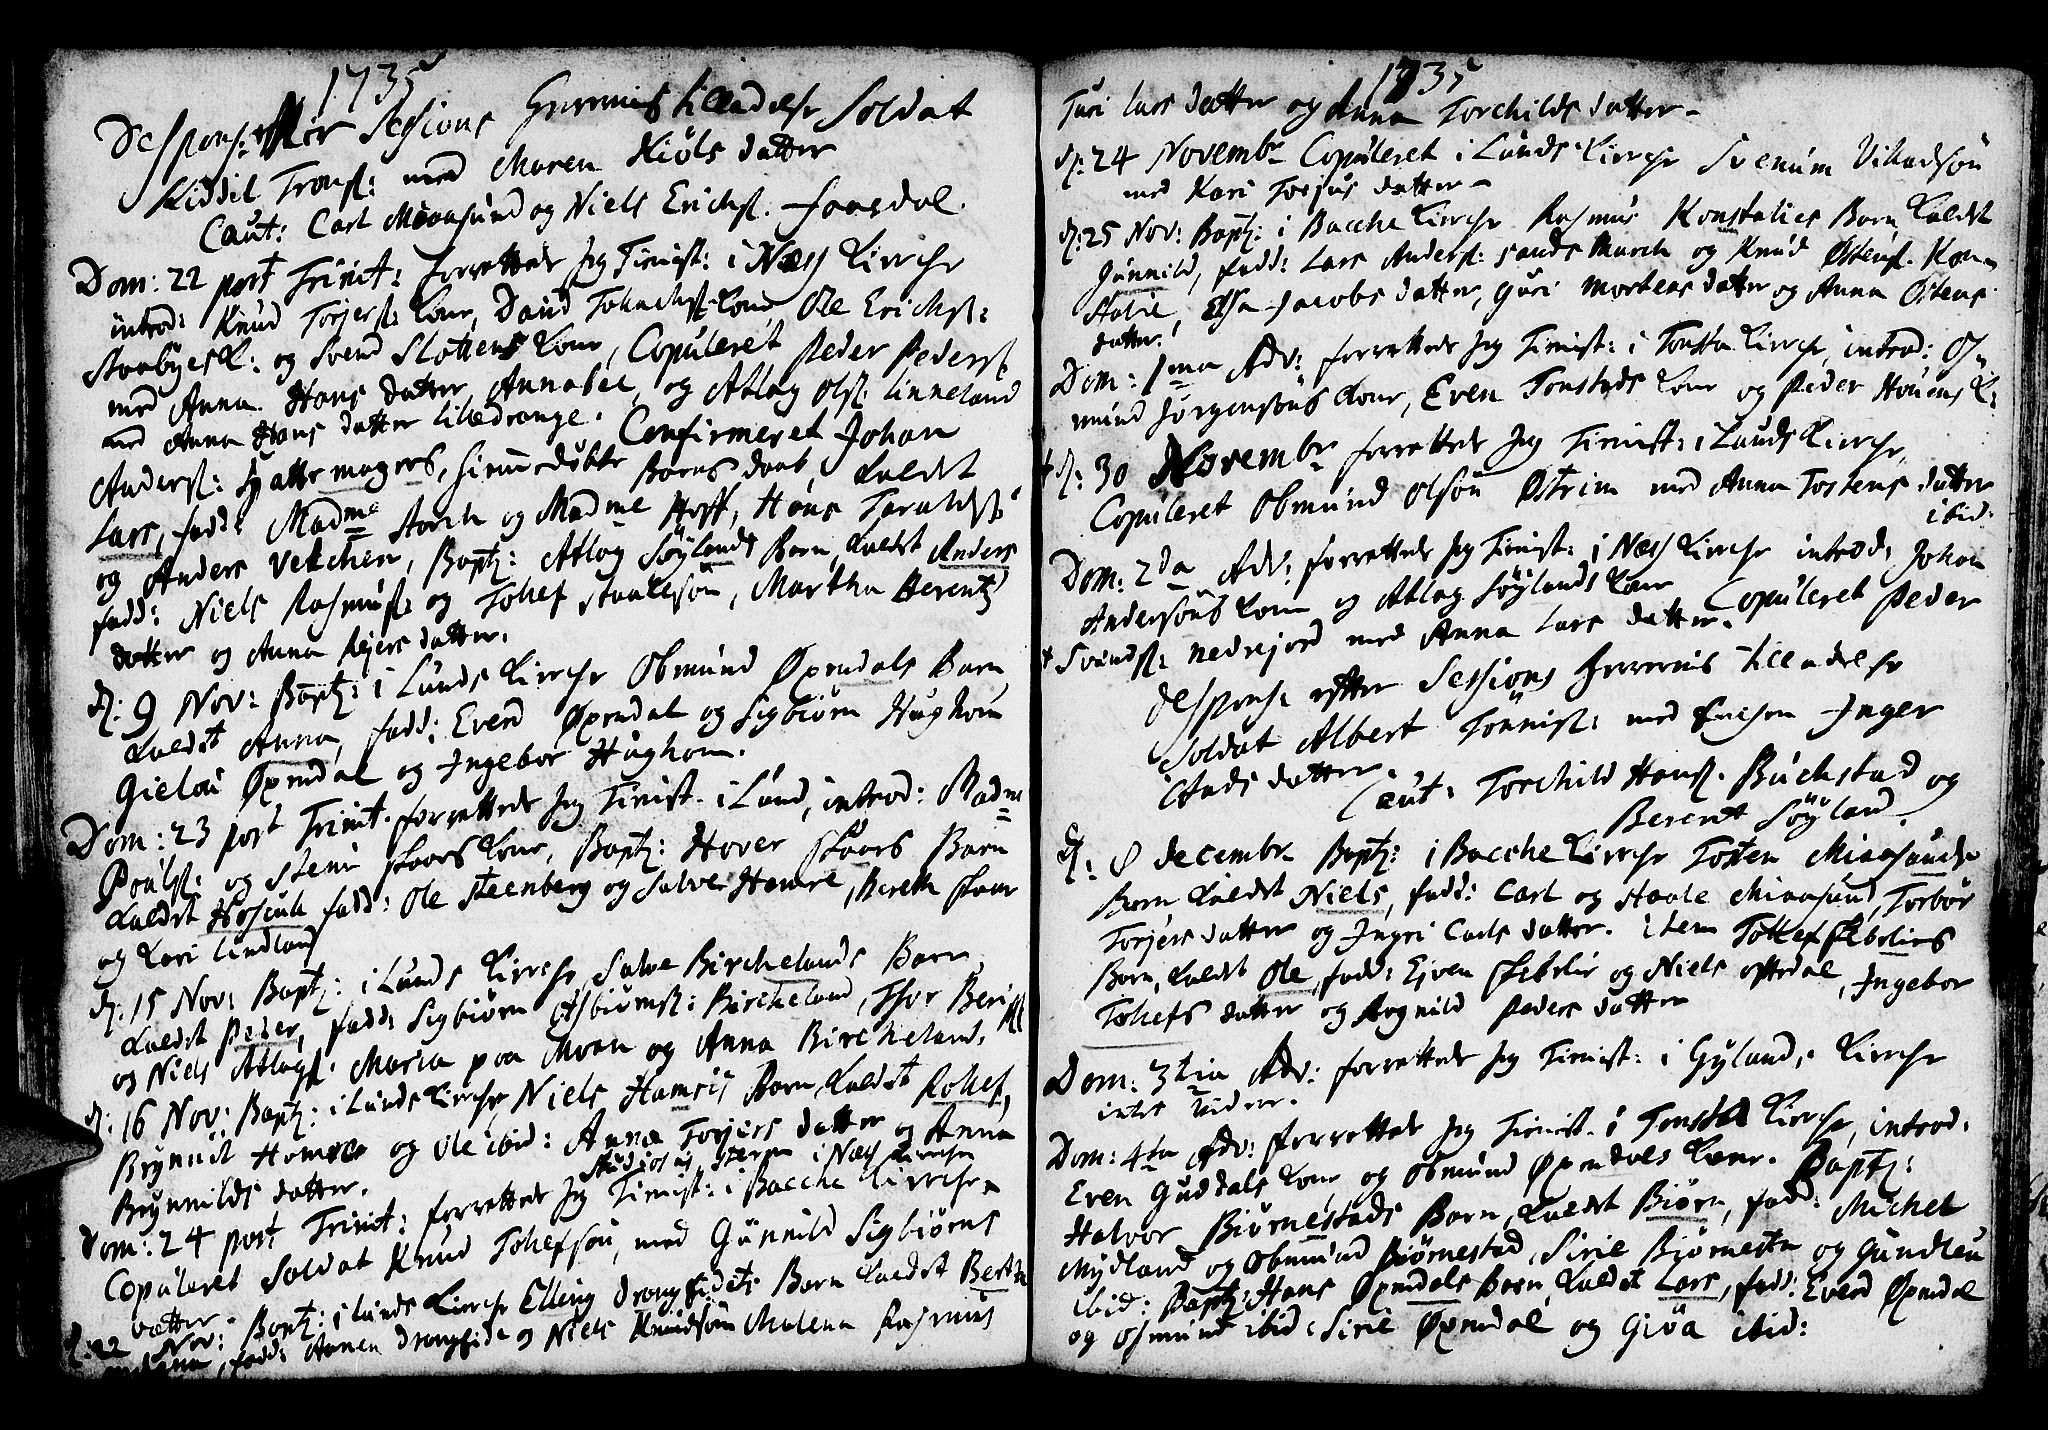 1735
Desponh: effter Sessions skrivernis tilladelse Soldat
Kiddil Tronß: med Maren Kiöls datter
Caut: Carl Moensund og Niels Erichß. Jaasdal.
Dom: 22 post Trinit: forrettede Jeg Tieniſt: i Næs Kirche
introd: Knud Torjerß: Kone, David Tollachß Kone Ole Erichß:
K: og Svend Slottens Kone, Copuleret Peder Pederß
med Anna Hans datter Annabee, og Atlag Olß: Linneland
med Anna Hans datter Lilledrange. Confirmeret Johan
Anderß: Hattemagers, hiemmedøbte Barns daab, Kaldet
Lars, fadd: Madme Storch og Madme Hoff, Hans Taraldß:
og Anders Vetchen, Bapt: Atlag Söylands Barn, Kaldet Anders
fadd: Niels Rasmusß og Tollef Staalesøn, Martha Berentz
datter og Anna Rejers datter.
d: 9 Nov: Bapt: i Lunds Kirche Obmund Øxendals Barn
Kaldet Anna, fadd: Evend Øxendal og Sigbiørn Hughom
Gielou Øxendal og Ingebor Hughom.
Dom: 23 post Trinit. forrettede Jeg Tieniſt. i Lund, introd: Madme
Poulß: og Steni Skaars Kone, Bapt: Hover Skaars Barn
Kaldet fadd: Ole Steenberg og Salve Hamre, Bereth Skaar
og Kari Lindland
d: 15 Nov: Bapt: i Lunds Kirche Salve Birchelands Barn
Kaldet Peder, fadd: Sigbiørn Asbiørnsß: Bircheland, Thor
og Niels Atlagß: Maria paa Moen og Anna Bircheland.
d: 16 Nov: Bapt: i Lunds Kirche Niels Hamris Barn Kaldet
Brynnil Hamre og Ole ibid: Anna Torjers datter og Anna
Brynnilds datter.
Studiosus i Næs Kirche
Dom: 24 post Trinit: forrettede Jeg Tieniſt: i Bacche Kirche
Copuleret Soldat Knud Tollefsøn, med Gunnild Sigbiørns
datter.
d: 22 Nov: Bapt: i Lunds Kirche Elling Drangsidets Barn Kaldet Bertha
fadd: Drangside og Niels Knudsøn Malena Rasmus
1735
Turi Lars datter og Anna Torchilds datter
d: 24 Novembr Copuleret i Lunds Kirche Svenum Vikadsøn
med Kari Torjus datter
d: 25 Nov: Bapt: i Bacche Kirche Rasmus Konstalies Barn Kaldet
Gunnild, fadd: Lars Anderß: Sandsmarch og Knud Østenß. Kon-
stalie, Elsa Jacobs datter, Guri Mortens datter og Anna Østens
datter.
Dom: 1ma Adv: forrettede Jeg Tieniſt: i Tonsta Kirche, introd: Os-
mund Jørgensøns Kone, Even Tonstads Kone og Peder Houens K:
d: 30 Novembr forrettede Jeg Tieniſt: i Lunds Kirche,
Copuleret Obmund Olsøn Østrim med Anna Tostens datter
ibid.
Dom: 2da Adv: forrettede Jeg Tieniſt: i Næs Kirche introd: Johan
Andersøns Kone og Atlag Söylands Kone Copuleret Peder
Svendß: Nedrejord med Anna Lars datter.
Desponh. effter Sessions skrivernis tilladelse
Soldat Albert Tönnisß: med Enchen Inger
datter. Caut: Torchild Hanß. Buchstad og
Berent Söyland.
d: 8 Decembr Bapt: i Bacche Kirche Tosten Moensunds
Barn Kaldet Niels, fadd: Carl og Staale Moensund, Torbor
Torjers datter og Ingri Carls datter. item Tollef
Barn, Kaldet Ole, fadd: Ejven og Niels Ofstedal, Ingebor
Tollefs datter og Ragnild Peders datter
Dom: 3tia Adv: forrettede Jeg Tieniſt: i Gylands Kirche
intet videre.
Dom: 4ta Adv: forrettede Jeg Tieniſt. i Tonsta Kirche, introd.
Even Guddals Kone og Obmund Øxendals Kone. Bapt:
Halvor Biørnestads Barn, Kaldet Biørn, fadd: Michel
Mydland og Obmund Biørnestad, Sirie Biørnesta og Gundleu
ibid: Bapt: Hans Øxendals Barn, Kaldet Lars, fadd: Evend Øxendal
og Osmund ibid. Sirie Øxendal og Giva ibid: